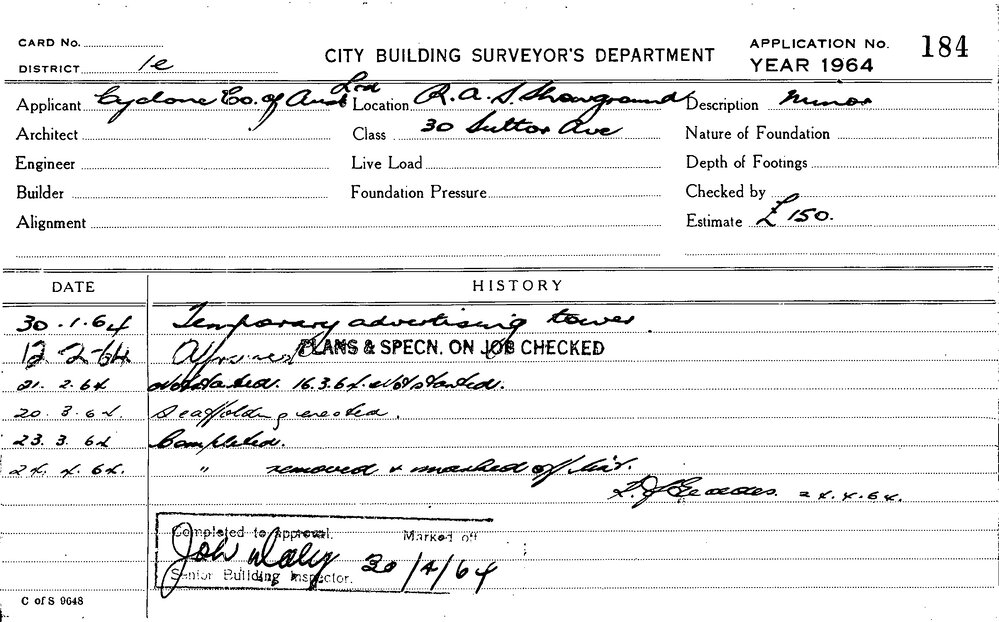 CARD No. APPLICATION No. 184
CITY BUILDING SURVEYOR'S DEPARTMENT
DISTRICT 1e YEAR 1964
Applicant Cyclone Co. of Aust Ltd Location R.A.S. Showground Description Minor
Architect Class 30 Suttor Ave Nature of Foundation
Engineer Live Load Depth of Footings
Builder Foundation Pressure Checked by
Alignment Estimate £150.
DATE HISTORY
30.1.64 Temporary advertising tower.
12.2.64 Approved PLANS & SPECN. ON JOB CHECKED
21.2.64 Not started. 16.3.64. Not started.
20.3.64. Scaffolding erected.
23.3.64 Completed.
24.4.64. " removed & marked off
24.4.64.
Completed to approval. Marked off
John Daly 30/4/64
Senior Building Inspector.
C of S 9648